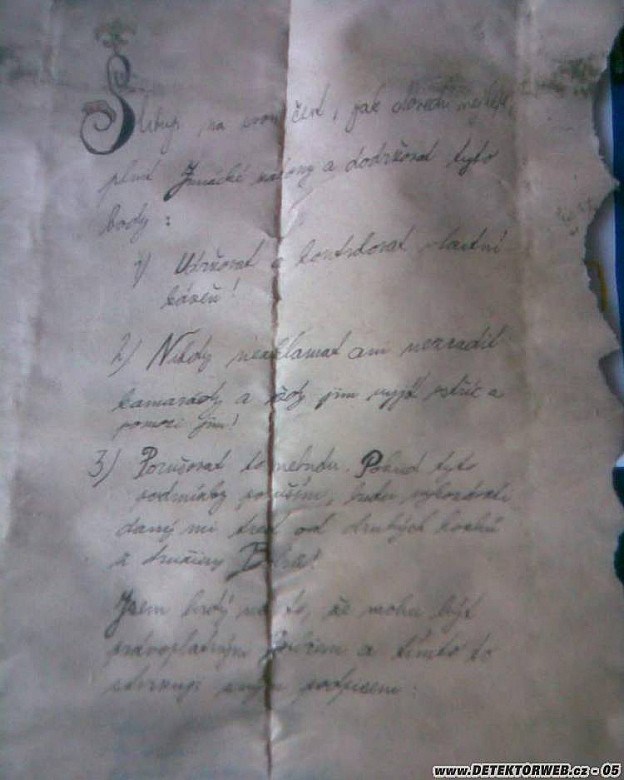 Slibuji na svou čest, jak dovedu nejlépe,
plnit Junácké zákony a dodržovat tyto
body:
1) Udržovat a kontrolovat vlastní
kázeň!
2) Nikdy neoklamat ani nezradit
kamarády a vždy jim vyjít vstříc a
pomoci jim!
3) Porušovat to nebudu. Pokud tyto
podmínky poruším, budu vykonávati
daný mi trest od druhých
a družiny
Jsem hrdý na to, že mohu být
právoplatným a tímto to
stvrzuji svým podpisem:
www.DETEKTORWEB.cz - 05